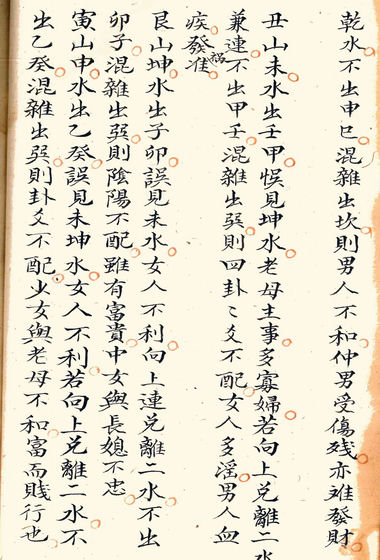 乾水不出申巳混雜出坎則男人不和仲男受傷殘亦难發財
丑山未水出壬甲悞見坤水老母主事多寡婦若向上兑離二水
兼連不出甲壬混雜出巽則四卦〻爻不配女人多淫男人血
疾發禍准
艮山坤水出子卯誤見未水女人不利向上連兑離二水不出
卯子混雜出巽則陰陽不配雖有富貴中女與長媳不忠
寅山申水出乙癸誤見未坤水女人不利若向上兑離二水不
出乙癸混雜出巽則卦爻不配少女與老母不和富而賤行也